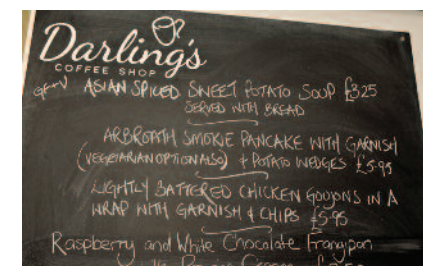 Darling's
COFFEE SHOP
ASIAN SPICED SWEET POTATO SOUP £3.25
SERVED WITH BREAD
ARBROATH SMOKIE PANCAKE WITH GARNISH
(VEGETARIAN OPTION ALSO) + POTATO WEDGES £5.95
LIGHTLY BATTERED CHICKEN GOUJONS IN A
WRAP WITH GARNISH & CHIPS £5.95
Raspberry and White Chocolate Frangipan